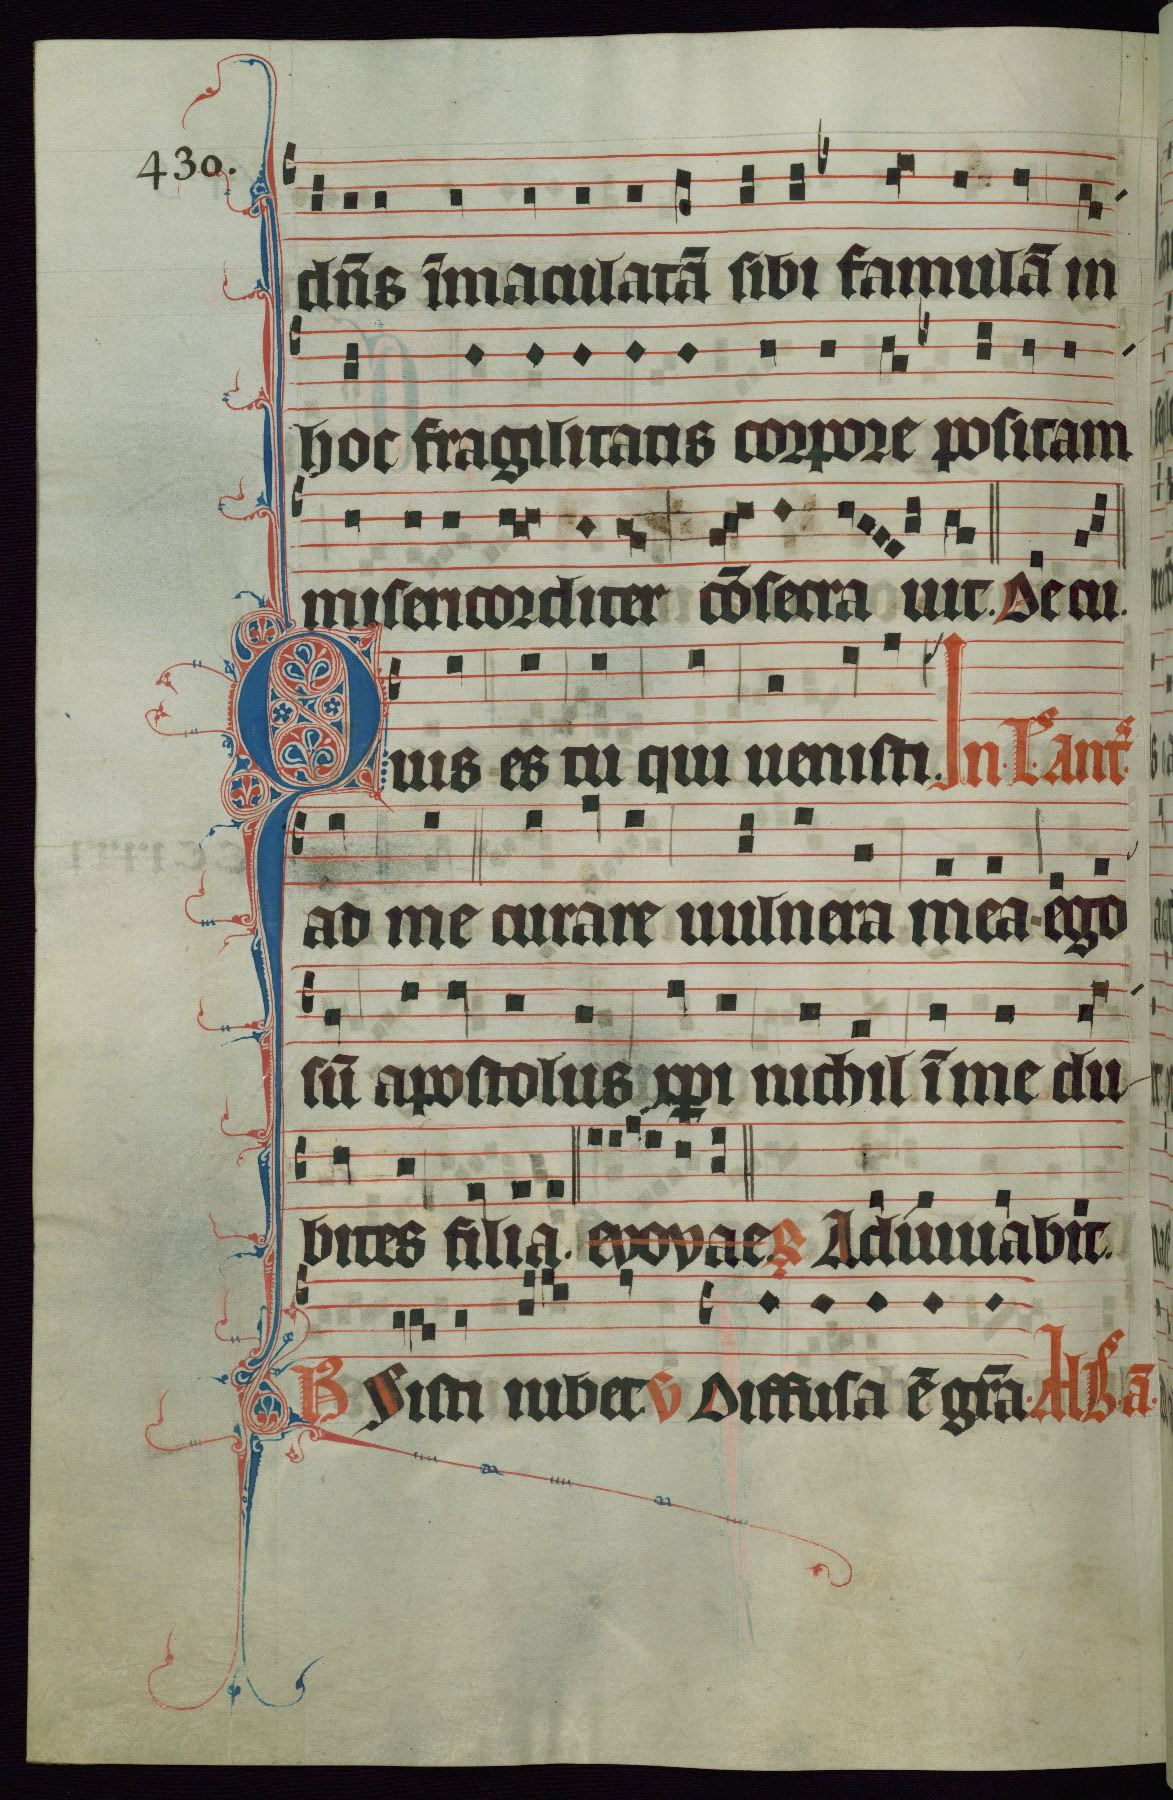 430.
dn̄s īmaculatā sibi famulā in
hoc fragilitatis corpore positam
misericorditer cōsecra uit. Decu.
Quis es tu qui uenisti. In L'. ant'.
ad me curare uulnera mea. ego
sū apostolus xp̄i nichil ī me du
bites filia. evovae R̷ Adiuuabit.
V̷ Sisti iubet. V̷ Diffusa ē gr̄a.